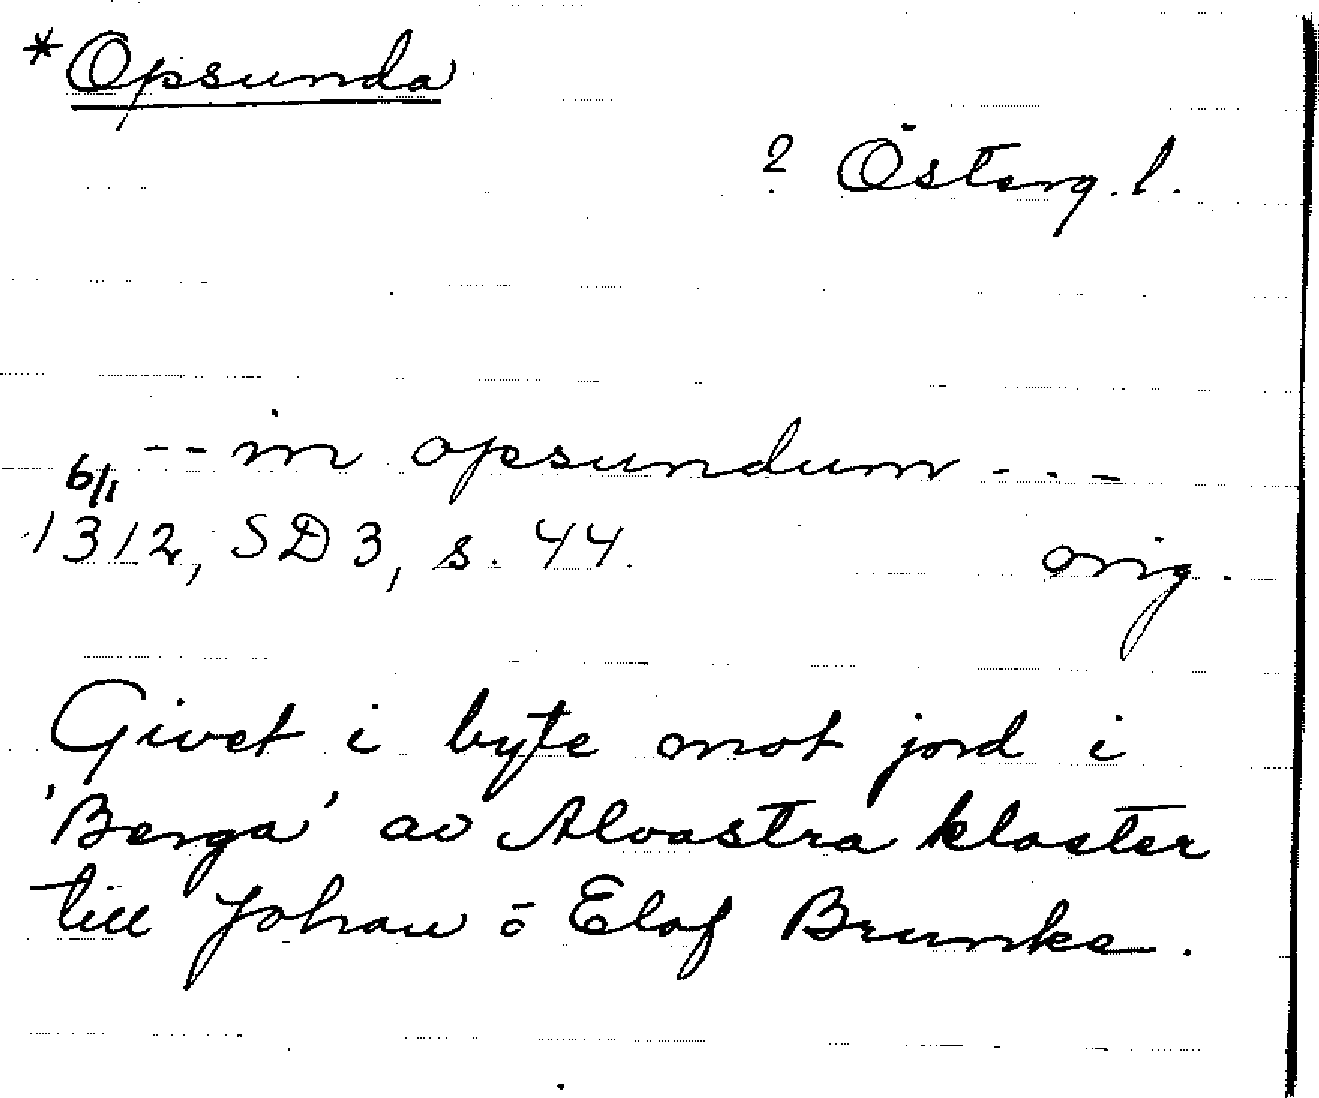 *Opsunda
? Österg. l.
-- in opsundum ---
6/1
1312, SD 3, s. 44. orig.
Givet i byte mot jord i
'Berga' av Alvastra kloster
till Johan o Elaf Brunke.